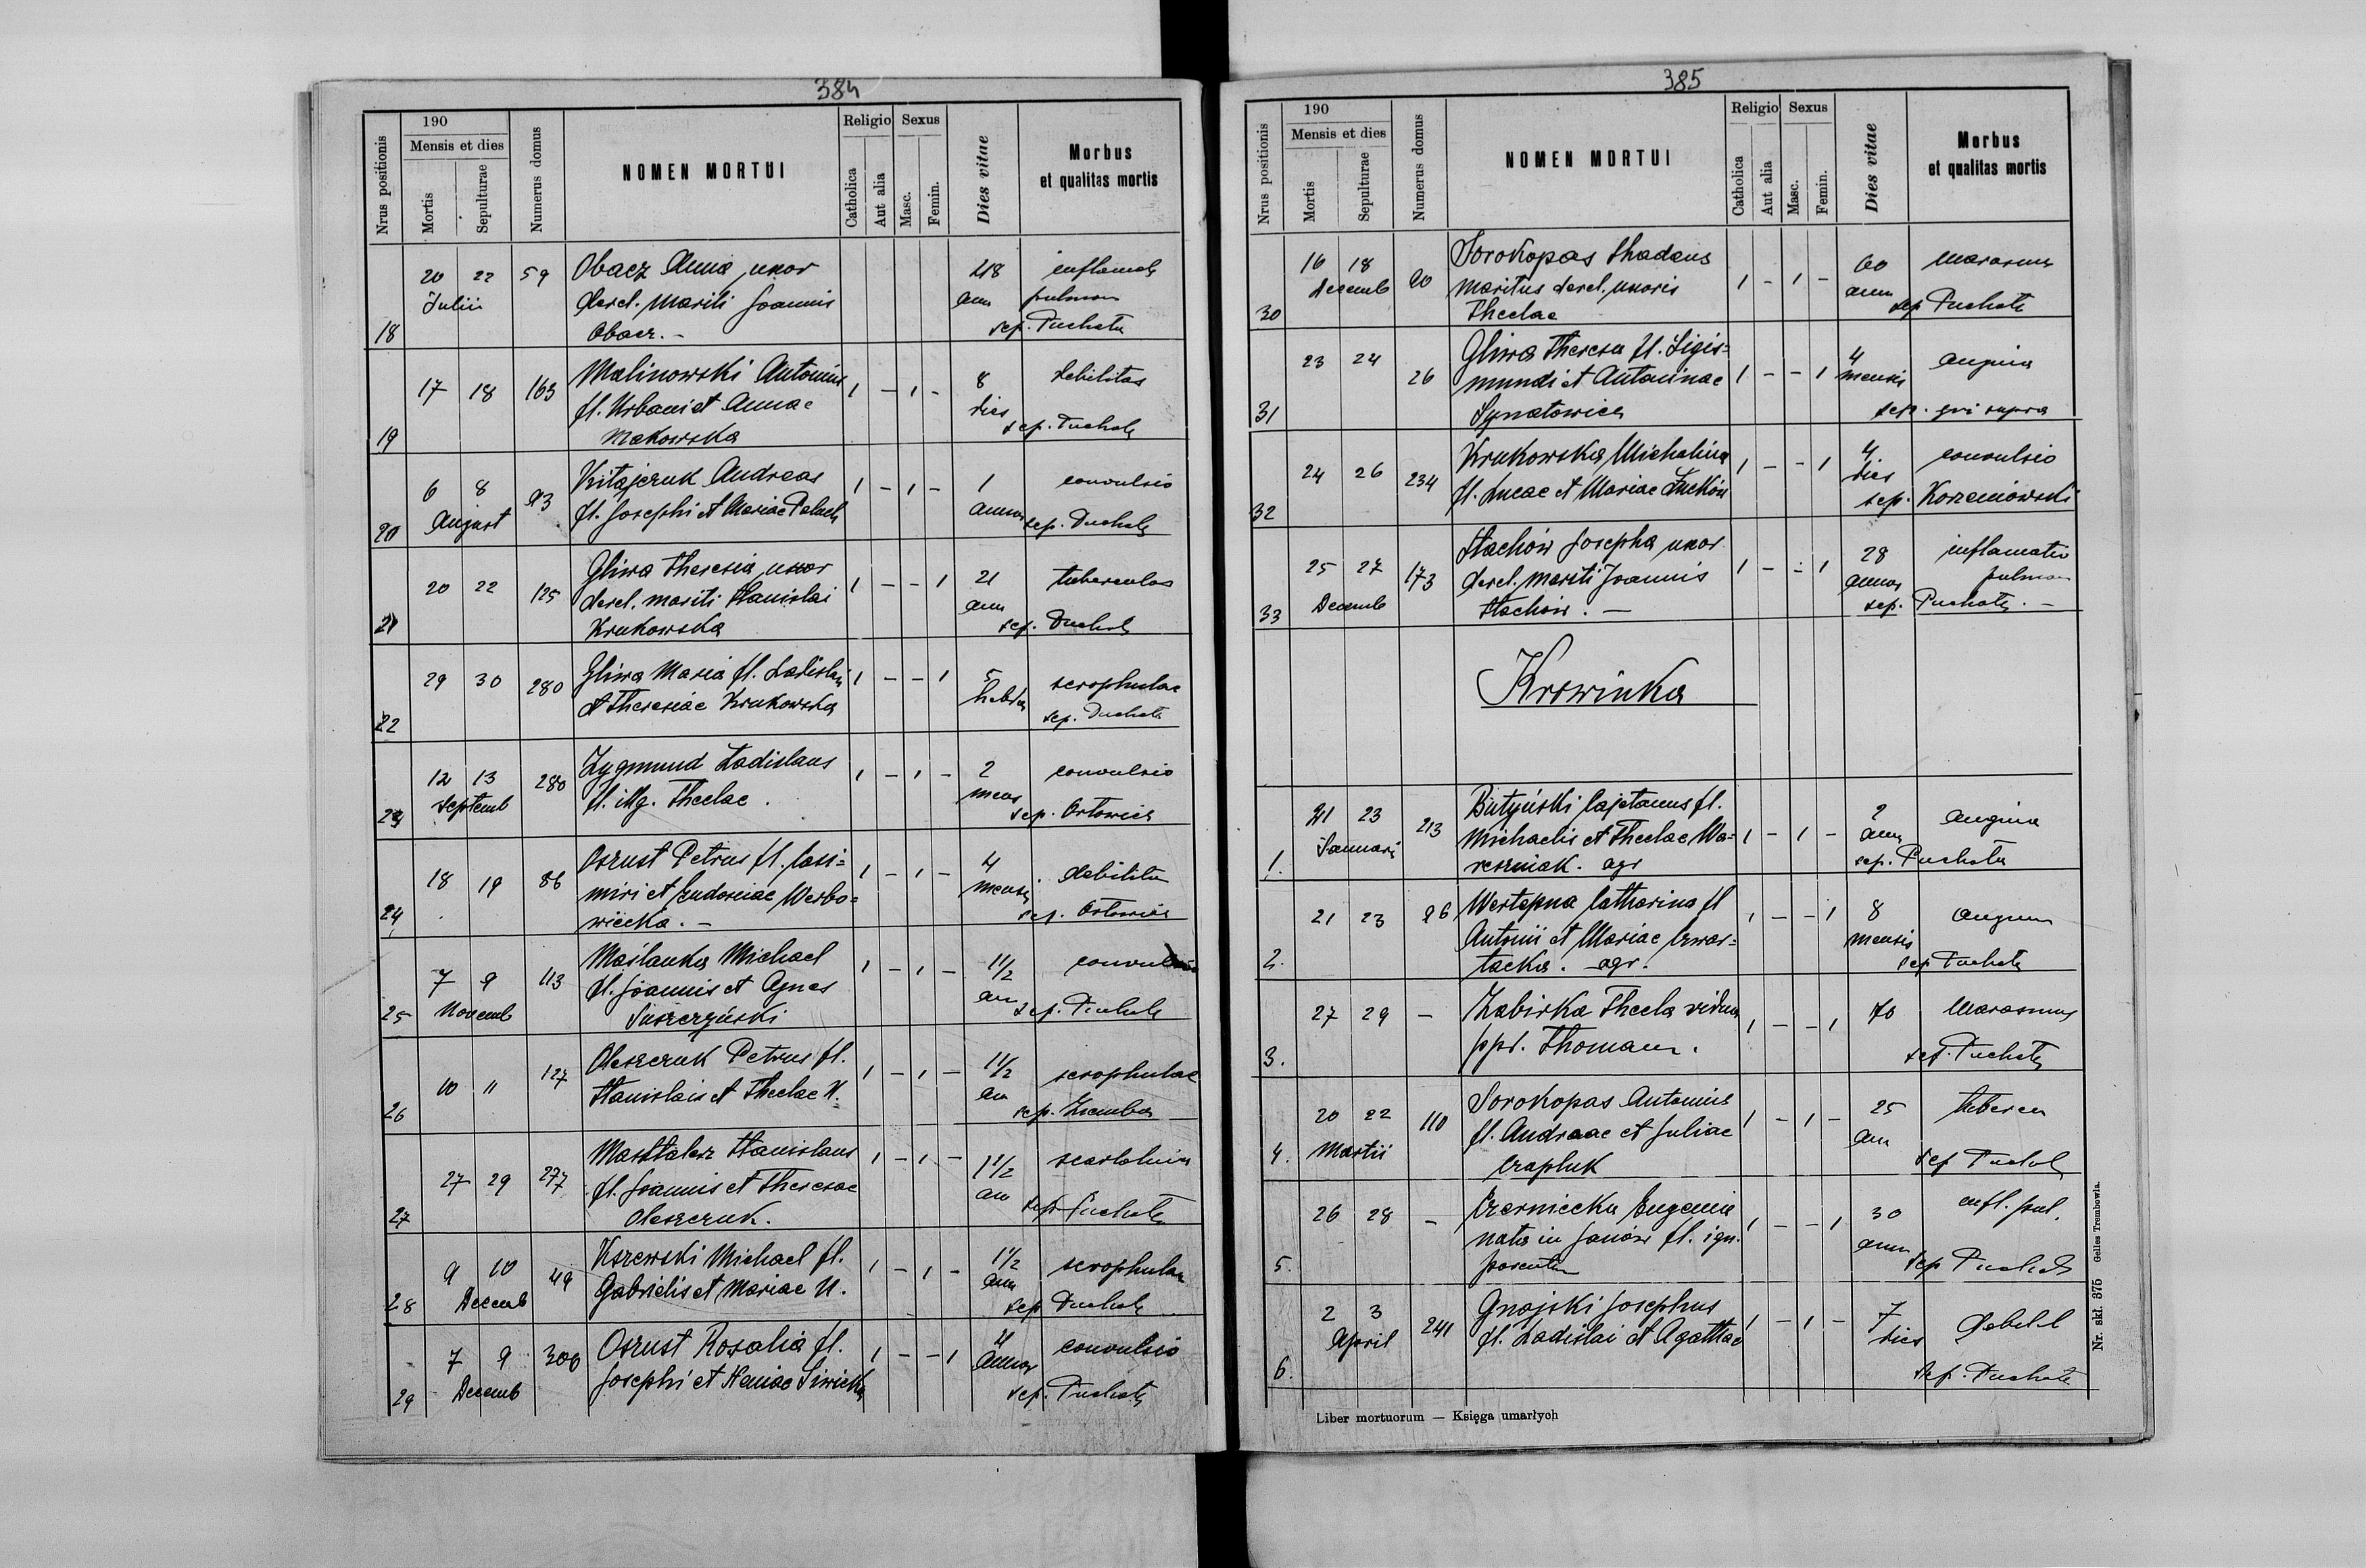 384
Nrus positionis
190
Mensis et dies
Mortis
Sepulturae
Numerus domus
NOMEN MORTUI
Religio
Catholica
Aut alia
Sexus
Masc.
Femin.
Dies vitae
Morbus
et qualitas mortis
18
20 22 59 Obacz Anna, uxor
Julii derel. mariti Joannis
Obacz. -
48 ann
pulmon
sep. Puchała
19
17 18 163 Malinowski Antonius 1 - 1 - 8 debilitas
fl. Urbani et Annae dies
Makowska sep. Puchała
20
6 8 93 Kitajczuk Andreas 1 - 1 - 1 convulsio
August fl. Josephi et Mariae sep. Puchała
21
20 22 125 Gliwa Theresia, uxor 1 - - 1 21 tuberculos
derel. mariti Stanislai ann
Krukowska sep. Puchała
22
29 30 280 Gliwa Maria fl. Ladislai 1 - - 1 5 scrophulae
et Theresiae Krukowska hebd
sep. Puchała
23
12 13 280 Zygmund Ladislaus 1 - 1 - 2 convulsio
Septemb fl. illeg. Theclae. mens
sep. Ortowicz
24
18 19 86 Oszust Petrus fl. Casi=
miri et Eudoxiae Werbo=
wiecka. -
1 - 1 - 4 debilita
mens
sep. Ortowicz
25
7 9 113 Maślanka Michael 1 - 1 - 1 1/2
Novemb fl. Joannis et Agnes an
Suszczyński sep. Puchała
26
10 11 127 Oleszczuk Petrus fl. 1 - 1 - 1 1/2 scrophulae
Stanislai et Theclae N. an
sep. Zaremba
27
27 29 277 Masztalerz Stanislaus 1 - 1 - 1 1/2 scarlatina
fl. Joannis et Theresae an
Oleszczuk. sep. Puchała
28
9 10 49 Kszewski Michael fl. 1 - 1 - 1 1/2 scrophulae
Decemb Gabrielis et Mariae N. ann
sep. Puchała
29
7 9 300 Oszust Rosalia fl. 1 - - 1 4 convulsio
Decemb Josephi et Siwicka annor
sep. Puchała
385
Nrus positionis
190
Mensis et dies
Mortis
Sepulturae
Numerus domus
NOMEN MORTUI
Religio
Catholica
Aut alia
Sexus
Masc.
Femin.
Dies vitae
Morbus
et qualitas mortis
30
16 18 90 Sorokopas Thadeus 1 - 1 - 60 marasmus
Decemb maritus derel. uxoris ann
Theclae sep Puchała
31
23 24 26 Gliwa Theresa fl. Sigis=
mundi et Antoninae
1 - - 1 4 angina
mensis
sep. qui supra
32
24 26 234 Krukowska Michalina 1 - - 1 4 convulsio
fl. Lucae et Mariae Lucków dies
sep. Korzeniowski
33
25 27 173 Stachów Josepha uxor 1 - - 1 28 inflamatio
Decemb derel. mariti Joannis annor pulmon
Stachów. - sep. Puchała. -
Krowinka
1.
21 23 213 Butyński Cajetanus fl. 2 angina
Januari Michaelis et Theclae Wa= 1 - 1 - ann
reszniak. agr sep. Puchała
2.
21 23 96 Wertepna Catharina fl 1 - - 1 8 angina
Antonii et Mariae Czwar= mensis
tacka. - agr. sep Puchała
3.
27 29 - Zabirka Thecla vidua 1 - - 1 70 marasmus
ppd. Thomam. sep. Puchała
4.
20 22 110 Sorokopas Antonius 1 - 1 - 25 tubercu
Martii fl. Andreae et Juliae ann
Czapluk sep Puchała
5.
26 28 - Czerniecka Eugenia 1 - - 1 30 infl. pul.
nata in Janów fl. ign. ann
parentum sep Puchała
6.
2 3 241 Gnojski Josephus 1 - 1 - 7 debil
April fl. Ladislai et Agathae dies
sep. Puchała
Liber mortuorum — Księga umarłych
Nr. skł. 375 Gelles Trembowla.